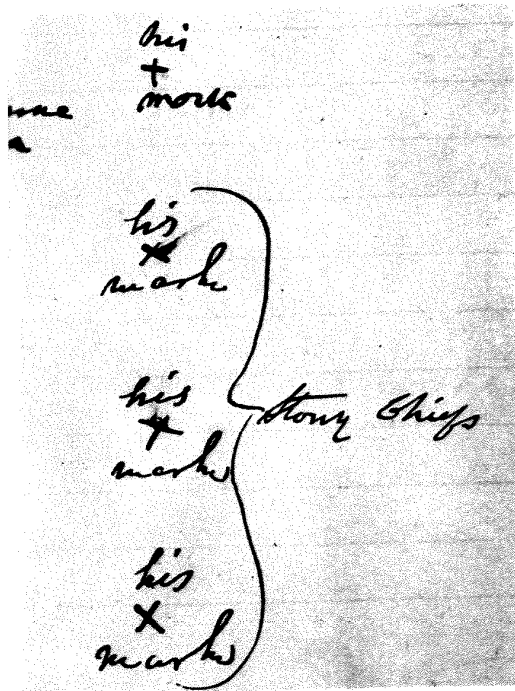 his
+
mark
his
x
mark
his
+
mark
Stony Chiefs
his
x
mark